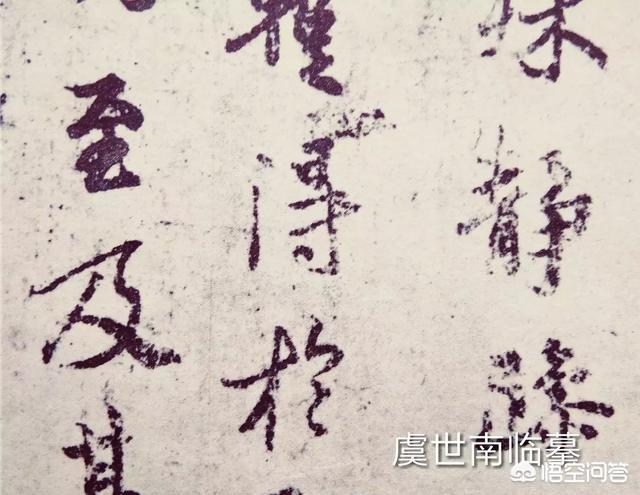 殊靜躁
得於
至及其
虞世南临摹
悟空问答